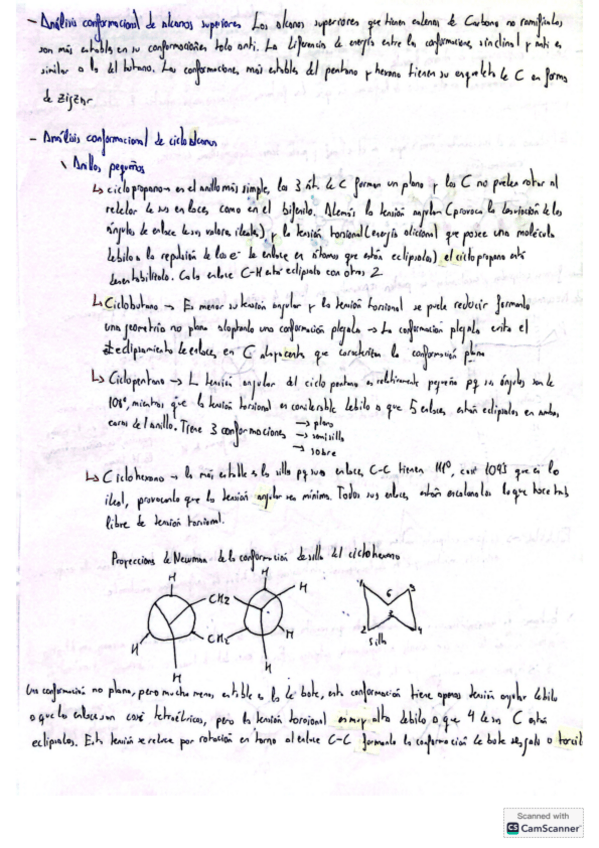 - Análisis conformacional de alcanos superiores. Los alcanos superiores que tienen cadenas de Carbono no ramificadas
son más estables en su conformaciónes todo anti. La diferencia de energía entre las conformaciones sinclinal y anti es
similar a la del butano. Las conformaciones más estables del pentano y hexano tienen su esqueleto de C en forma
de zigzag
- Análisis conformacional de cicloalcanos
\ Anillos pequeños
↳ ciclopropano → es el anillo más simple, los 3 át. de C forman un plano y los C no pueden rotar al
rededor de sus enlaces como en el bifenilo. Además la tensión angular (provoca la desviación de los
ángulos de enlace de sus valores ideales) y la tensión torsional (energía adicional que posee una molécula
debido a la repulsión de los e⁻ de enlace en átomos que están eclipsados) el ciclopropano está
desestabilizado. Cada enlace C-H está eclipsado con otros 2
↳ Ciclobutano → Es menor su tensión angular y la tensión torsional se puede reducir formando
una geometría no plana adoptando una conformación plegada → La conformación plegada evita el
eclipsamiento de enlaces en C adyacentes que caracteriza la conformación plana
↳ Ciclopentano → La tensión angular del ciclo pentano es relativamente pequeña pq sus ángulos son de
108º, mientras que la tensión torsional es considerable debido a que 5 enlaces están eclipsados en ambas
caras del anillo. Tiene 3 conformaciones → plano
→ semisilla
→ sobre
↳ Ciclohexano → la más estable es la silla pq sus enlaces C-C tienen 111º, casi 109,5 que es lo
ideal, provocando que la tensión angular sea mínima. Todos sus enlaces están escalonados lo que hace
libre de tensión torsional.
Proyecciones de Newman de la conformación de silla del ciclohexano
H H H
CH2
CH2
H H H H
1 6 5 3 2 4
Silla
Una conformación no plana, pero mucho menos estable es la de bote, esta conformación tiene apenas tensión angular debido
a que los enlaces son casi tetraédricos, pero la tensión torsional es muy alta debido a que 4 de sus C están
eclipsados. Esta tensión se reduce por rotación en torno al enlace C-C formando la conformación de bote sesgado o
Scanned with
CS CamScanner